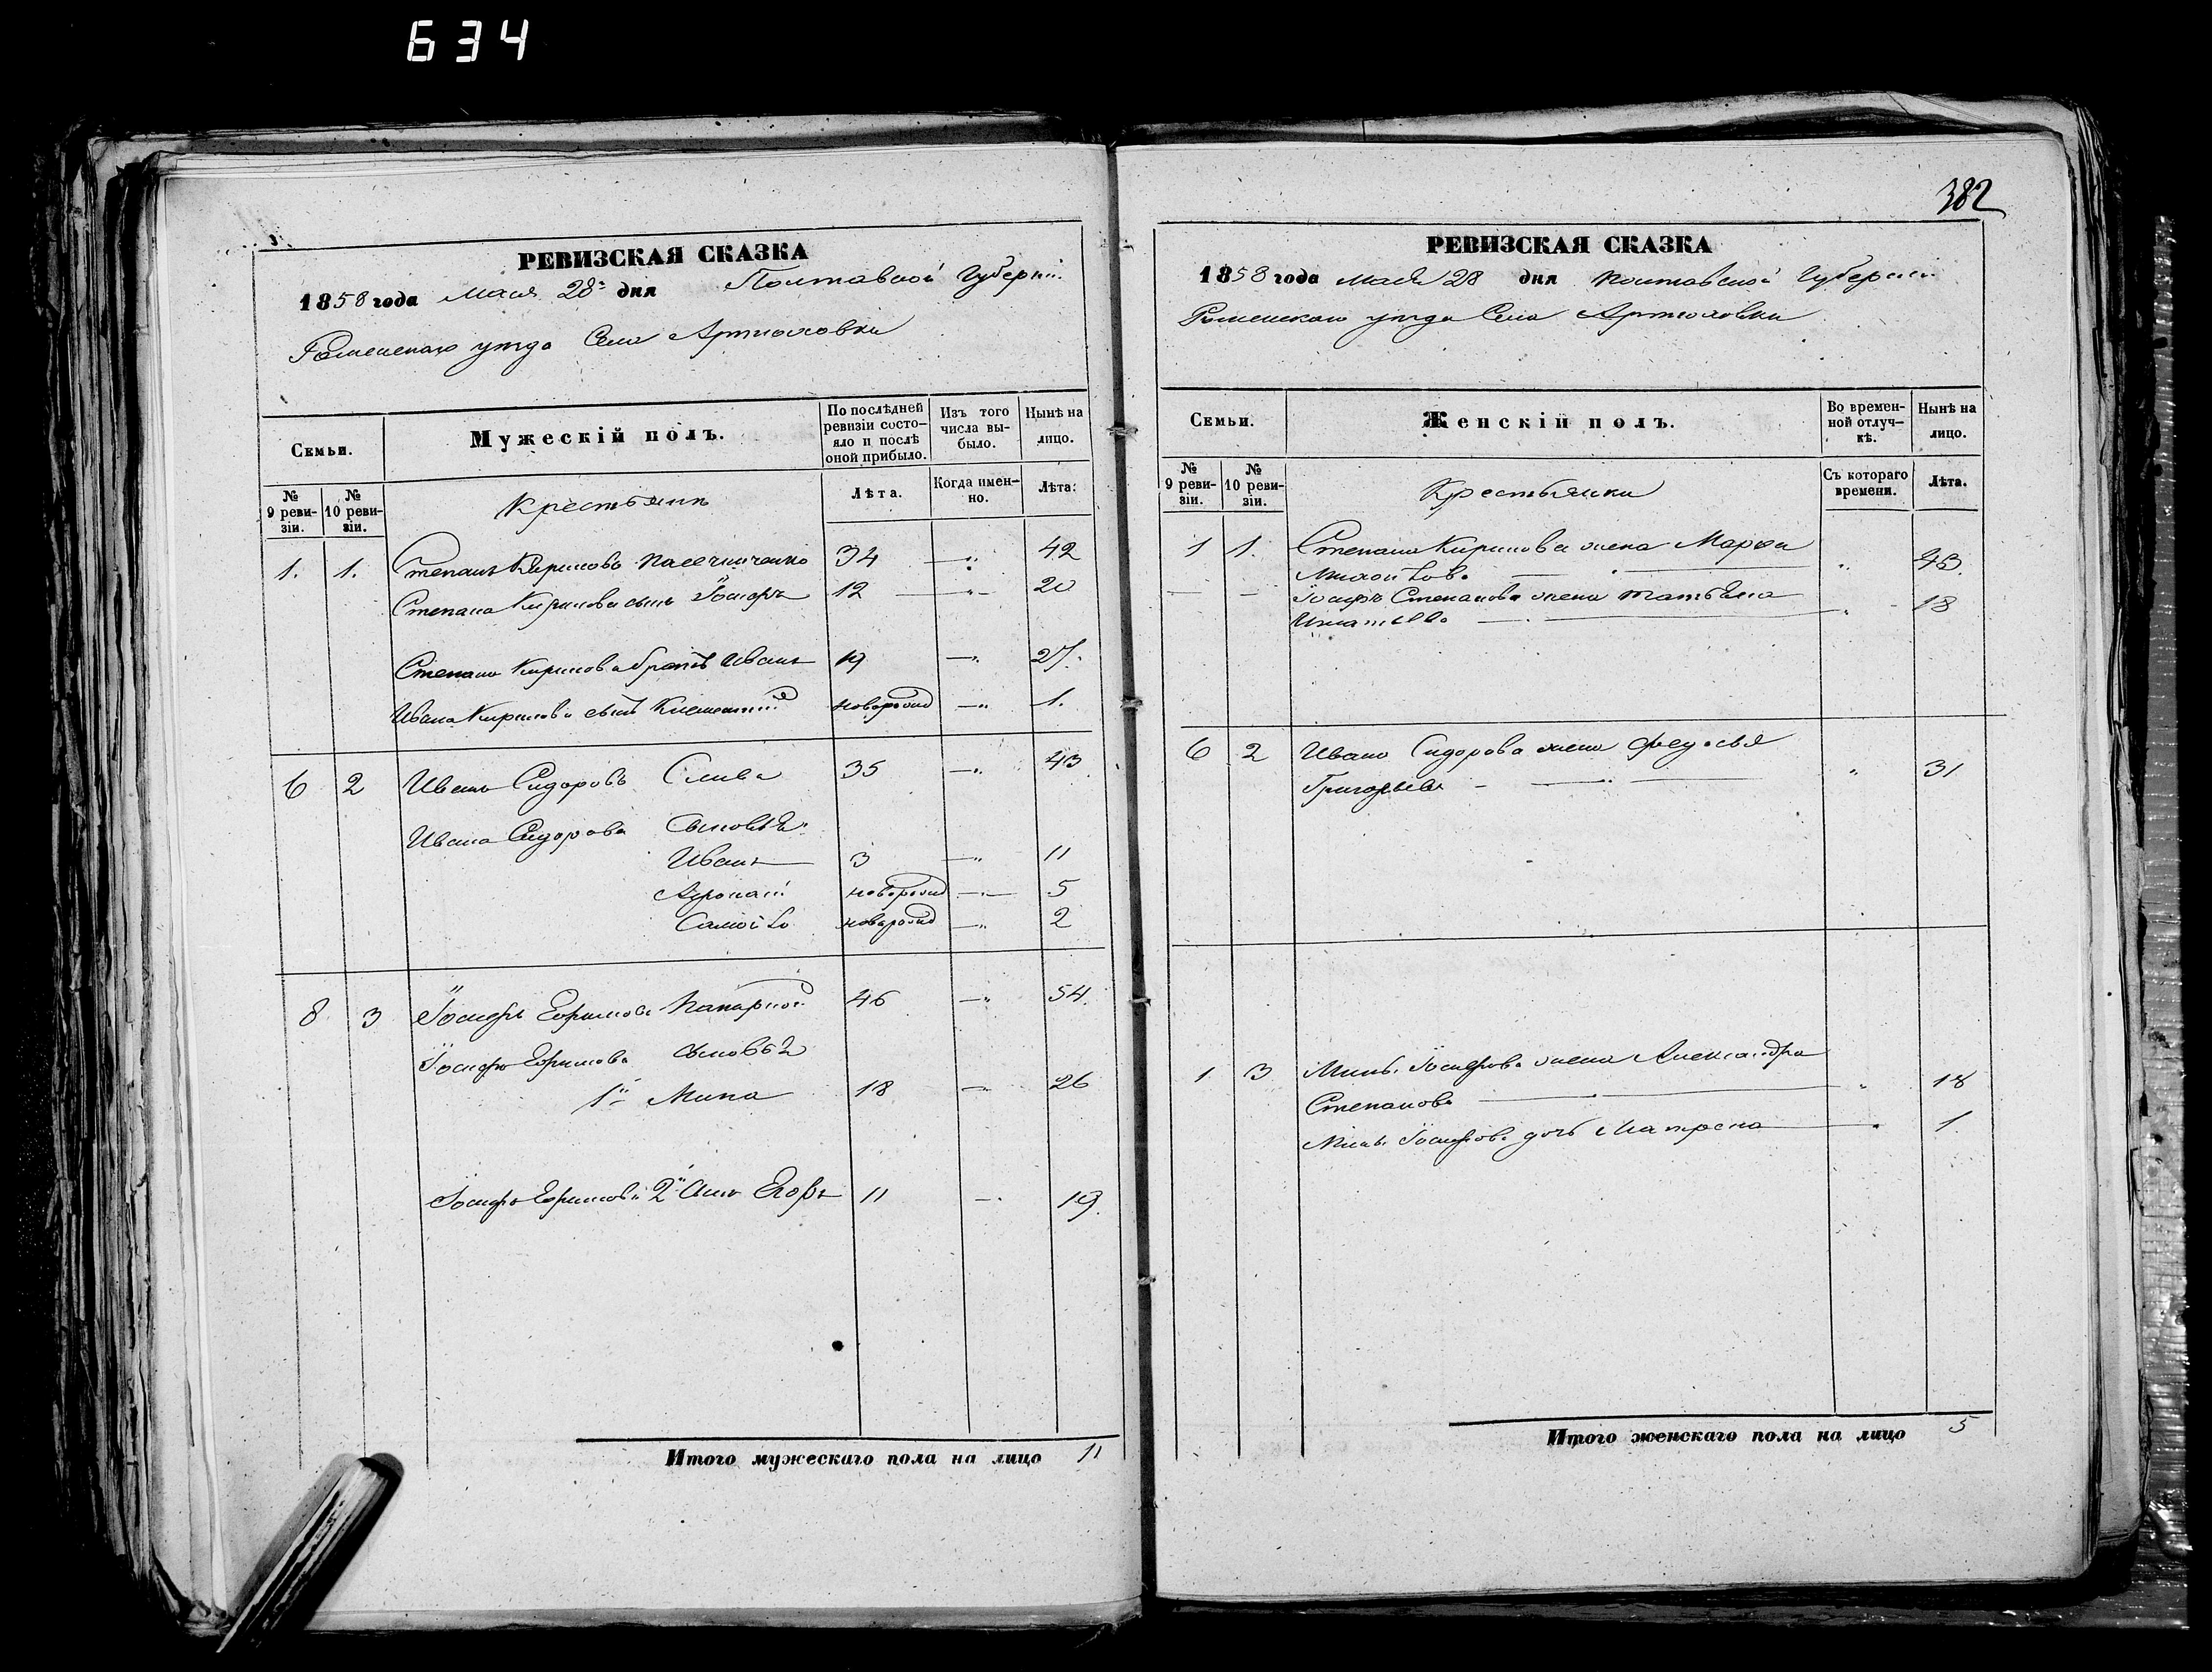 634
382
РЕВИЗСКАЯ СКАЗКА
1858 года Мая 28 дня Полтавской Губерніи
Роменскаго уезда Села Артюховки
Семьи.
Мужескій полъ.
По послѣдней ревизіи состояло и послѣ оной прибыло.
Изъ того числа выбыло.
Нынѣ на лицо.
№ 9 ревизіи.
№ 10 ревизіи.
Крестьяне
Лѣта.
Когда именно.
Лѣта.
1. 1. Степанъ Кириловъ Пасечниченко 34 — 42
Степана Кирилова сынъ Іосифъ 12 — 20
Степана Кирилова братъ Иванъ 19 — 27.
Ивана Кирилова сынъ Климентій новорожд — 1.
6 2 Иванъ Сидоровъ Слива 35 — 43
Ивана Сидорова Сыновья:
Иванъ 3 — 11
новорожд — 5
Самойло новорожд — 2
8 3 Іосифъ Ефимовъ 46 — 54.
Іосифа Ефимова сыновья
1й Мина 18 — 26
Іосифа Ефимова 2й Сынъ Егоръ 11 — 19.
Итого мужескаго пола на лицо 11
РЕВИЗСКАЯ СКАЗКА
1858 года Мая 28 дня Полтавской Губерніи
Роменскаго уезда Села Артюховки
Семьи.
Женскій полъ.
Во временной отлучкѣ.
Нынѣ на лицо.
№ 9 ревизіи.
№ 10 ревизіи.
Крестьянки
Съ котораго времени.
Лѣта.
1 1. Степана Кирилова жена Марфа
Михайлова — " 43.
— — Іосифа Степанова жена Татьяна
Игнатьева — " 18
6 2 Ивана Сидорова жена Федосья
Григорьева — " 31
1 3 Мины Іосифова жена Александра
Степанова — " 18
Мины Іосифова дочь Матрена — " 1.
Итого женскаго пола на лицо 5